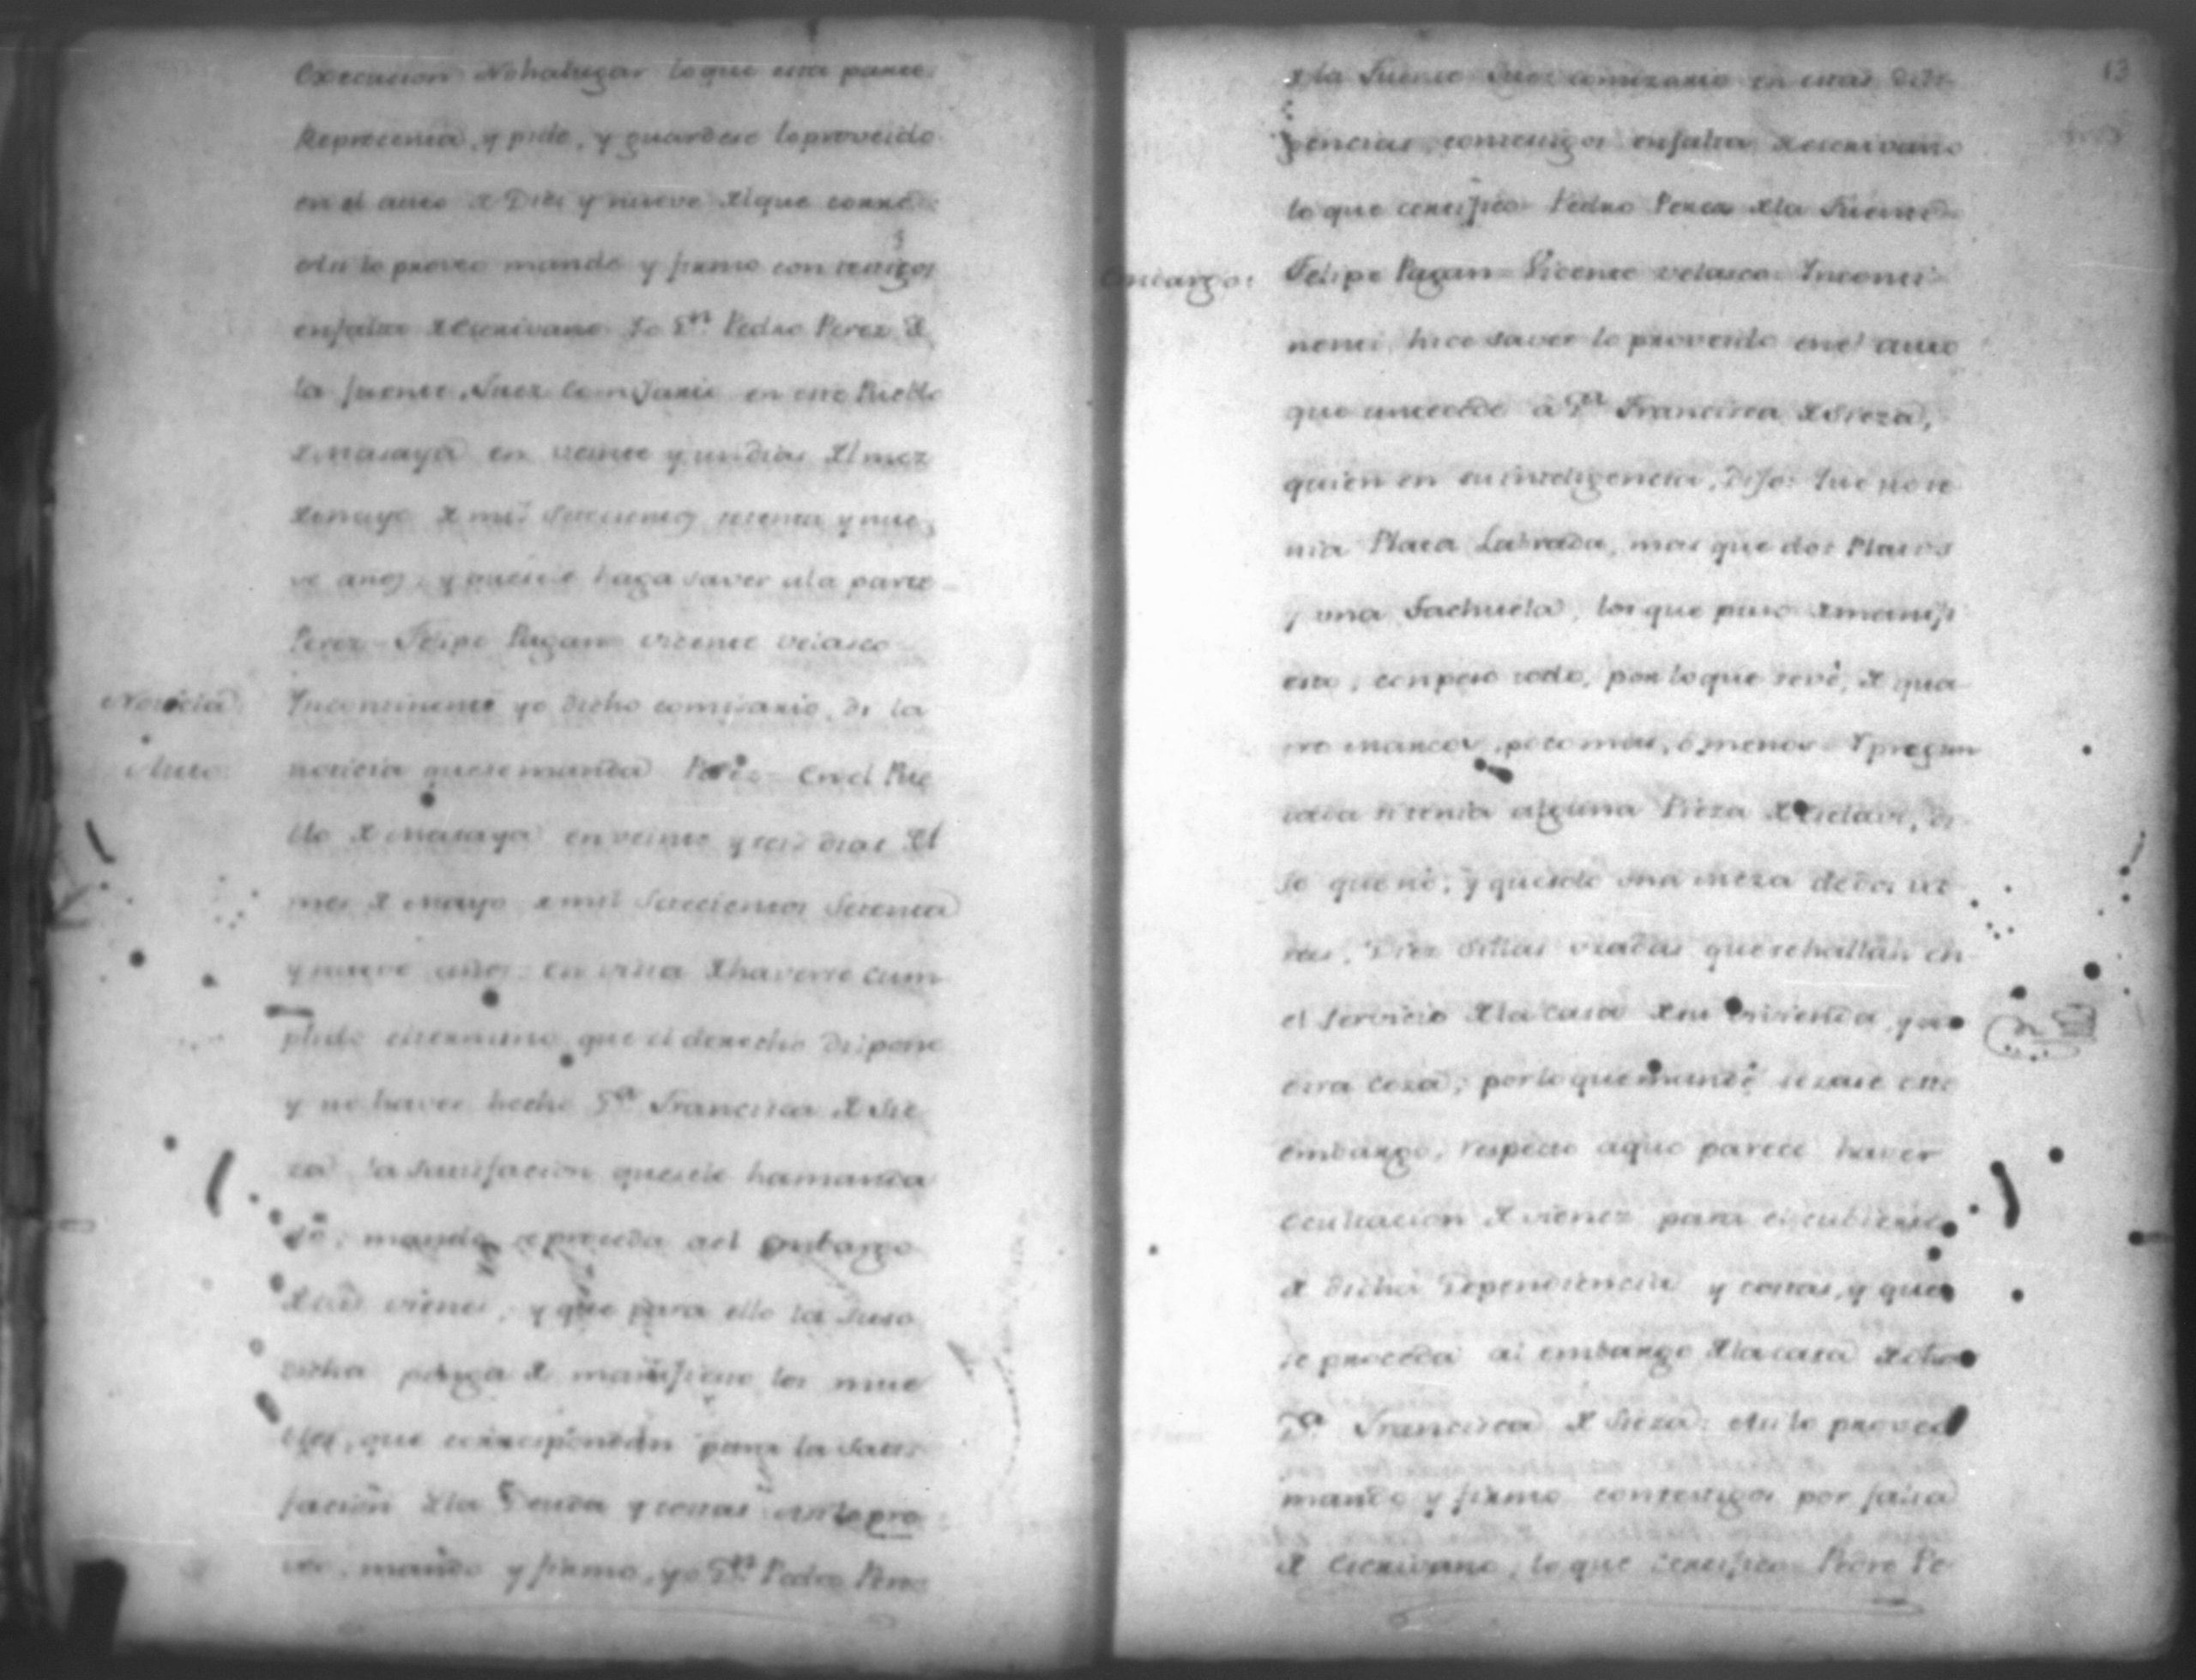 Execucion Nohalugar loque esta parte
Reprecenta, y pide, y guardese loproveido
en el auto de Dies y nueve delque corre=
Asi lo proveo mando y firmo con testigos
enfalta de escrivano Yo Dn. Pedro Perez de
la fuente, Juez Comisario en este Pueblo
de Masaya en veinte y un dias del mez
de mayo de mil Setecientos setenta y nue
ve años, y que se le haga saver ala parte
Perez= Felipe Pagan= vicente velasco
Noticia Yncontinenti yo dicho comisario, di la
Auto noticia quesemanda Perez= En el Pue
blo de Masaya en veinte y seis dias del
mes de Mayo de mil Setecientos Setenta
y nueve años: en vista de haverse cum
plido el termino que el derecho dispone
y no haver hecho Da. Francisca de Sie
za la Satisfacion quesele hamanda
do, mando se proceda ael embargo
de sus vienes, y que para ello la suso
dicha ponga de manifiesto los mue
bles, que correspondan para la Satis
facion de la Deuda y costas Asi lo pro
veo, mando y firmo, yo Dn. Pedro Perez
13
de la Fuente Juez comizario en estas dili
gencias, contestigos enfalta de escrivano
lo que certifico Pedro Perez de la Fuente=
Embargo: Felipe Pagan= Vicente velasco= Yncontí
nenti, hice saver lo proveido en el auto
que antecede á Da. Francisca de Sieza,
quien en su inteligencia, dijo: Que no te
nia Plata Labrada, mas que dos Platos
y una Tachuela, los que puso de manifi
esto, con peso todo, por lo que se vé, de qua
tro marcos, poco mas, o menos= Y pregun
tada si tenia alguna Pieza de Esclavo, di
jo que nó; y que solo una meza de dos va
ras, Diez Sillas vsadas que se hallan en
el servicio de la casa de su vivienda, y no
otra coza; por lo que mandé sezase este
embargo, respecto aque parece haver
ocultacion de vienez para el cubierto
de dicha Dependiencia y costas, y que
se proceda al embargo de la casa de dha
Da. Francisca de Sieza: Asi lo proveo
mando y firmo contestigos por falta
de Escrivano, lo que certifico= Pedro Pe